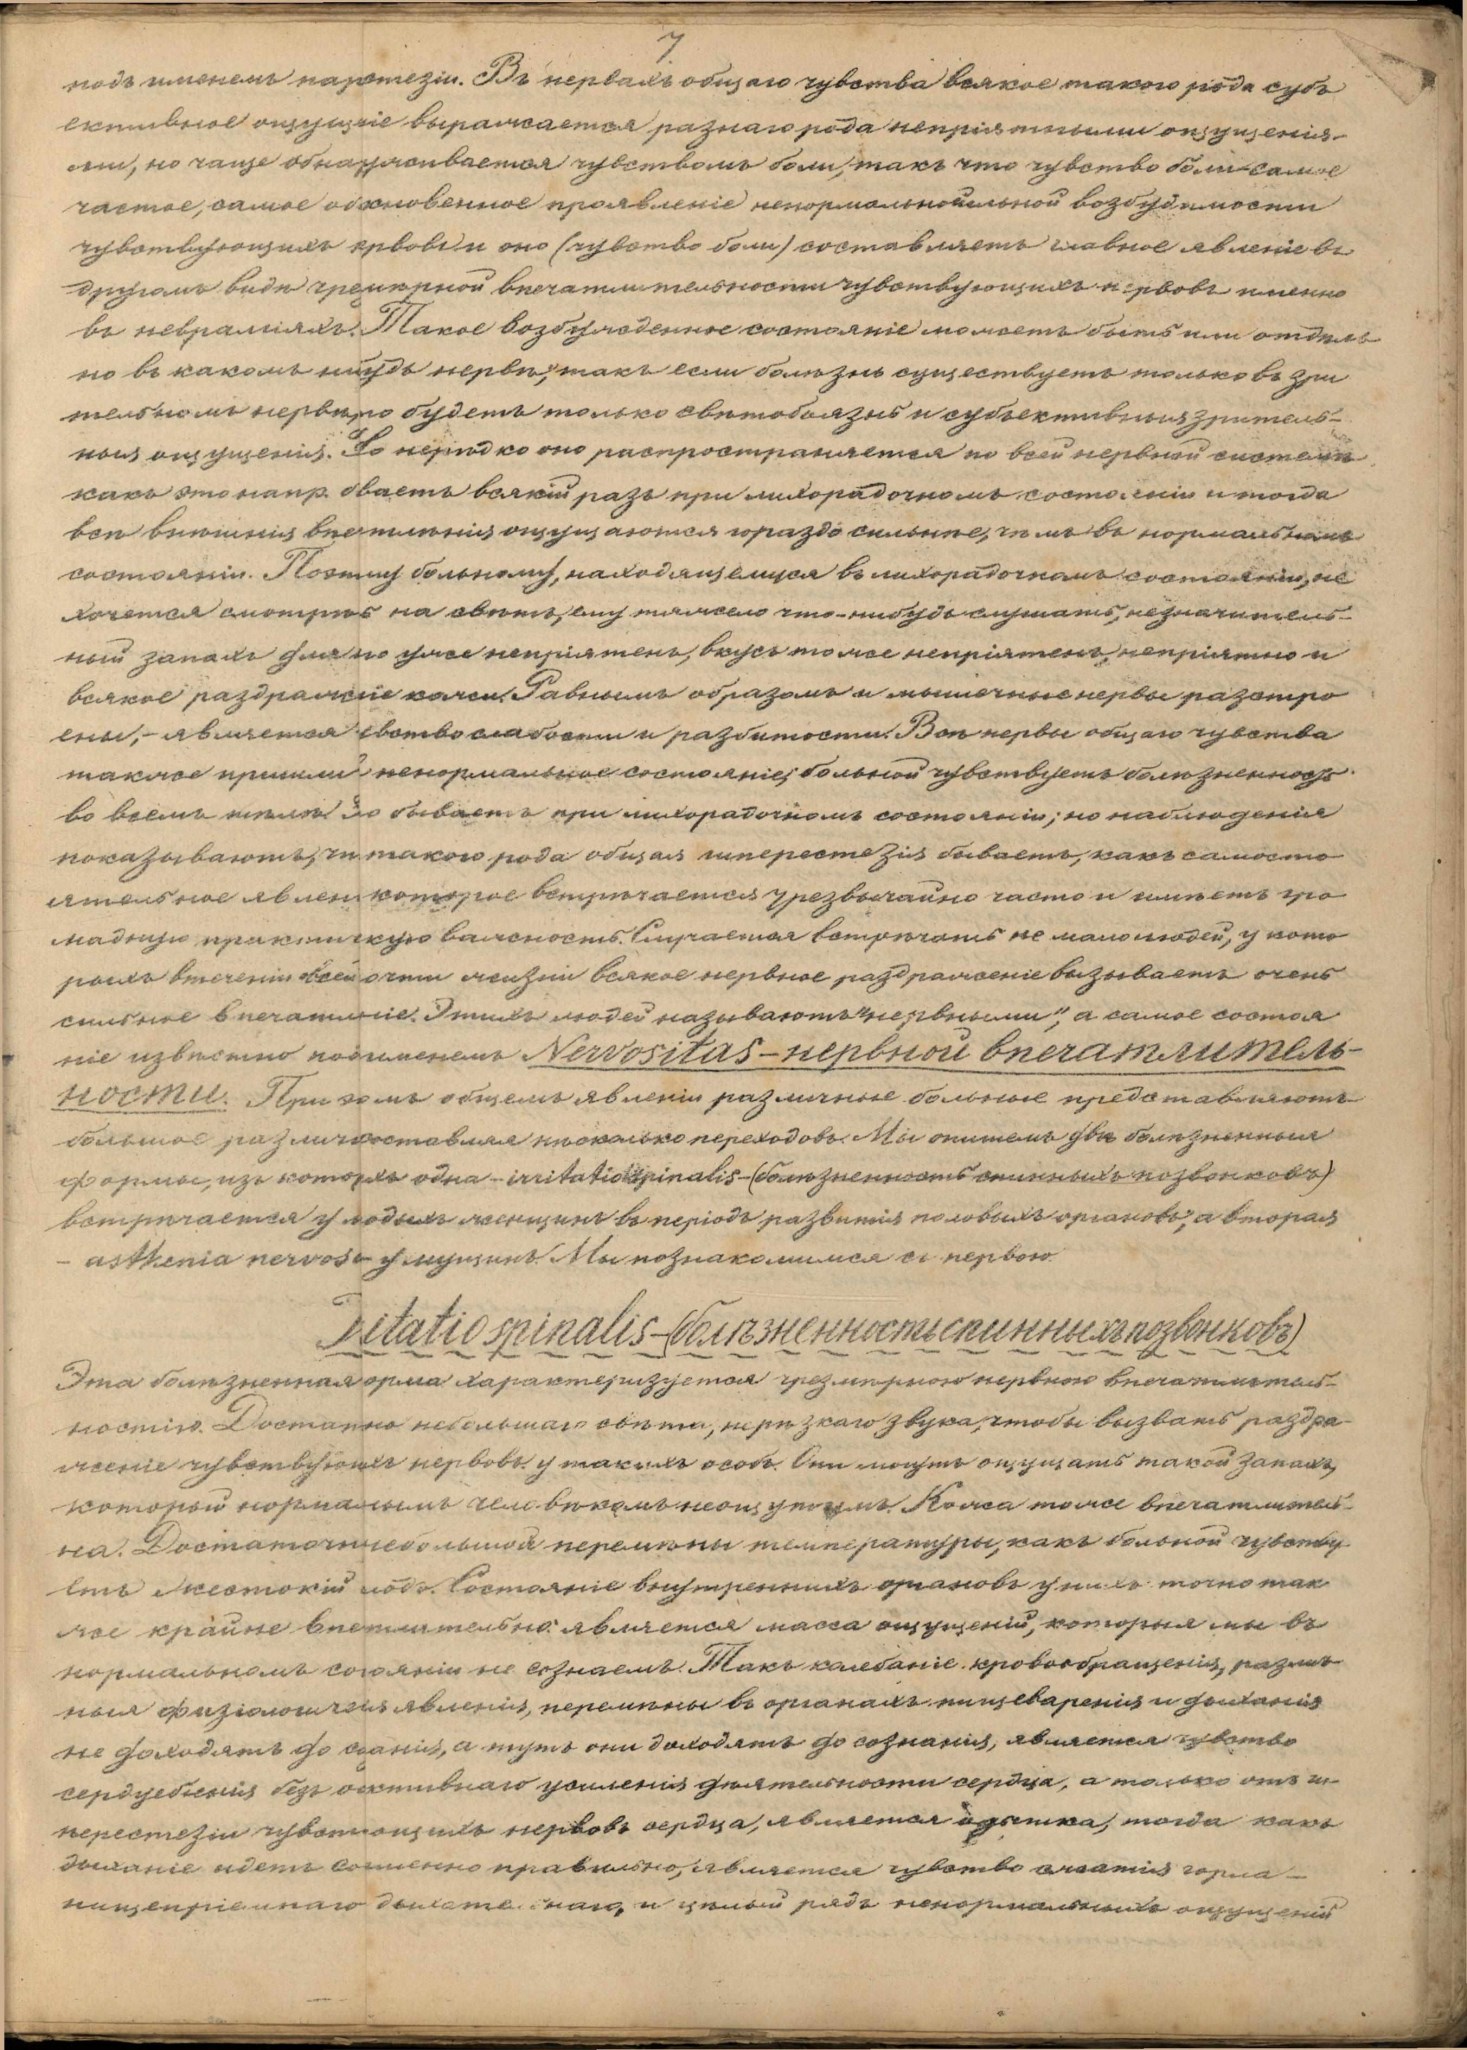 7
подъ именемъ парэстезіи. Въ нервахъ общаго чувства всякое такого рода субъ
ективное ощущніе выражается разнаго рода непріятными ощущенія-
ми, но чаще обнауживается чувствомъ боли, такъ что чувство боли самое
частое, самое обыкновенное проявленіе возбудимости
чувствующихъ нрвовъ и оно (чувство боли) составляетъ главное явленіе въ
другомъ видѣ чрезмѣрной впечатлительности чувствующихъ нервовъ именно
въ невралгіяхъ. Такое возбужденное состояніе можетъ быть или отдѣль
но въ какомъ нибудь нервѣ, такъ если болѣзнь существуетъ только въ зри
тельномъ нервѣ, то будетъ только свѣтобоязнь и субъективныя зритель-
ныя ощущенія. Но нерѣдко оно распространяется по всей нервной системѣ
какъ это напр. бваетъ всякій разъ при лихорадочномъ состояніи и тогда
всѣ внѣшнія впетлѣнія ощущаются гораздо сильнѣе, чѣмъ въ нормальномъ
состояніи. Поэтму больному, находящемуся въ лихорадочномъ состояніи, не
хочется смотрѣть на свѣтъ, ему тяжело что-нибудь слушать, незначитель-
ный запахъ для него уже непріятенъ, вкусъ тоже непріятенъ, непріятно и
всякое раздражніе кожи. Равнымъ образомъ и мышечные нервы разстро
ены, - является чвство слабости и разбитости. Всѣ нервы общаго чувства
также пришли ненормальное состояніе; больной чувствуетъ болѣзненность
во всемъ тѣлѣ. Это бываетъ при лихорадочномъ состояніи; но наблюденія
показываютъ, чт такого рода общая гиперестезія бываетъ, какъ самосто
ятельное явлен которое встрѣчается чрезвычайно часто и имѣетъ гро
мадную практичкую важность. Случается встрѣчать не мало людей, у кото
рыхъ втеченіи всей очти жизни всякое нервное раздраженіе вызываетъ очень
сильное впечатлніе. Этихъ людей называютъ "нервными", а самое состоя
ніе извѣстно подименемъ Nervositas - нервной впечатлитель-
ности. При эомъ общемъ явленіи различные больные представляютъ
большое различ оставляя нѣсколько переходовъ. Мы опишемъ двѣ болѣзненныя
формы, изъ которхъ одна - irritatio spinalis - (болѣзненность спинныхъ позвонковъ)
встрѣчается у лодыхъ женщинъ въ періодъ развитія половыхъ органовъ, а вторая
- asthenia nervosa у мущинъ. Мы познакомимся съ первою.
Iritatio spinalis - (болѣзненность спинныхъ позвонковъ)
Эта болѣзненная орма характеризуется чрезмѣрною нервною впечатлитель-
ностію. Достатно небольшаго свѣта, нерѣзкаго звука, чтобы вызвать раздра-
женіе чувствующихъ нервовъ у такихъ особъ. Они могутъ ощущать такой запахъ,
который нормалнымъ человѣкомъ неощутимъ. Кожа тоже впечатлитель-
на. Достаточн небольшой перемѣны температуры, какъ больной чувству
етъ жестокій ...одъ. Состояніе внутреннихъ органовъ у нихъ точно так
же крайне впетлительно: является масса ощущеній, которыя мы въ
нормальномъ сояніи не сознаемъ. Такъ калебаніе кровообращенія, разли
ныя физіологичеія явленія, перемѣны въ органахъ пищеваренія и дыханія
не доходятъ до сонанія, а тутъ они доходятъ до сознанія, является чувство
сердцебіенія безъ обективнаго усиленія дѣятельности сердца, а только отъ ги-
перестезіи чувствующихъ нервовъ сердца, является одышка, тогда какъ
дыханіе идетъ соченно правильно, является чувство сжатія горла -
пищепріемнаго дыхате..наго, и цѣлый рядъ ненормальныхъ ощущеній